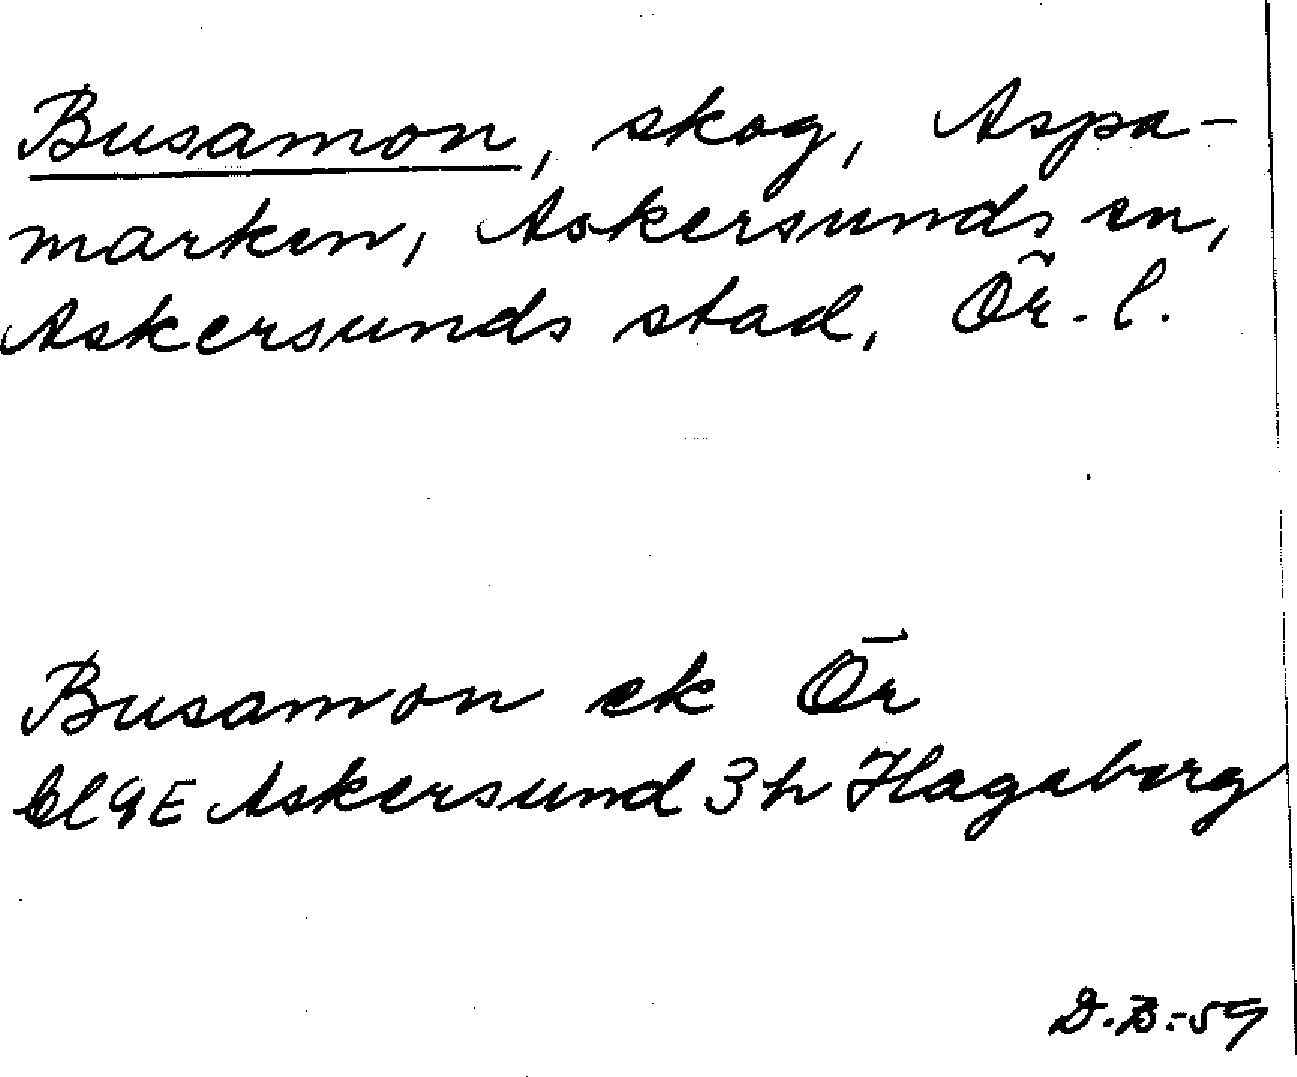 Busamon, skog, Aspa-
marken, Askersunds en,
Askersunds stad, Ör. l.
Busamon ek Ör
9E Askersund 3h Hagaberg
D.B.-59